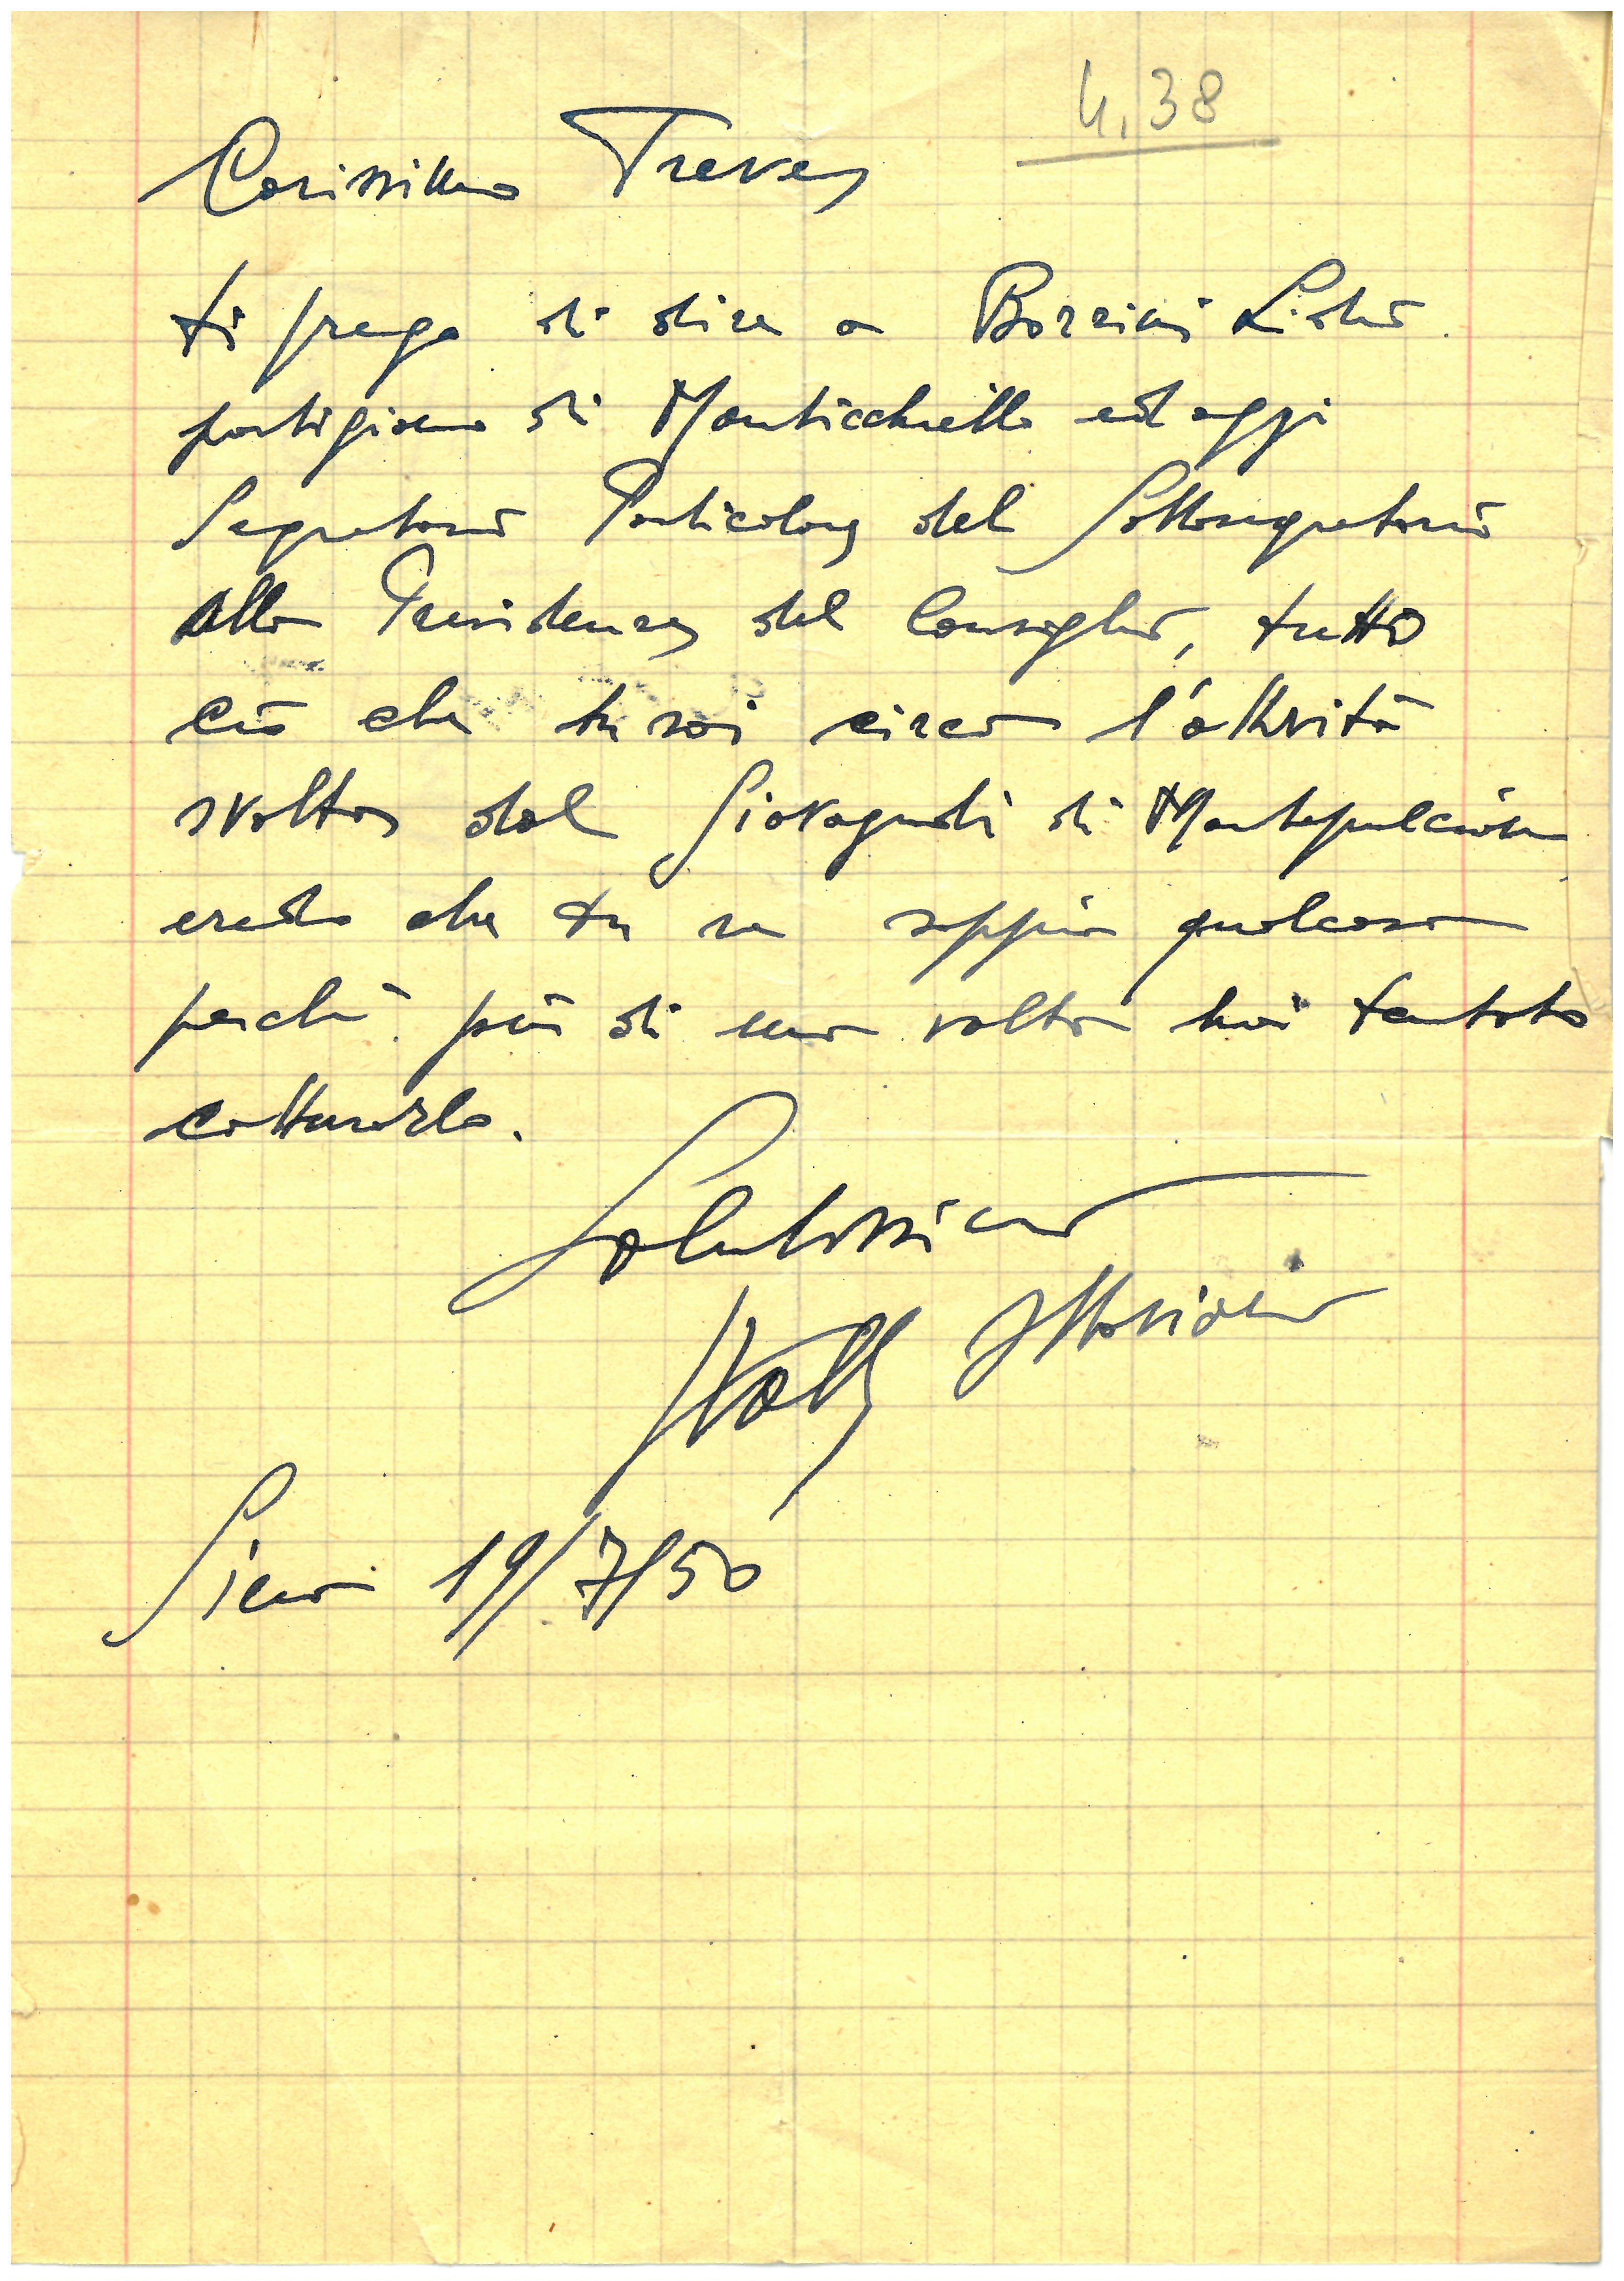 4.38
Carissimo Treves
ti prego di dire a Borrini Lidio
partigiano di Monticchiello ed oggi
Segretario Particolare del Sottosegretario
alla Presidenza del Consiglio, tutto
ciò che tu sai circa l'attività
svolta dal Giovagnoli di Montepulciano
credo che tu ne sappia qualcosa
perché più di una volta hai tentato
catturarlo.
Salutissimi
Siena 19/7/50